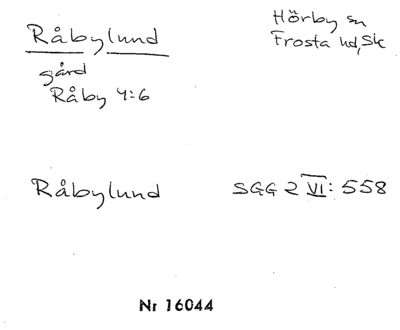 Råbylund
Hörby sn
Frosta hd, Sk
gård
Råby 4:6
Råbylund
SGG 2 VI: 558
Nr 16044